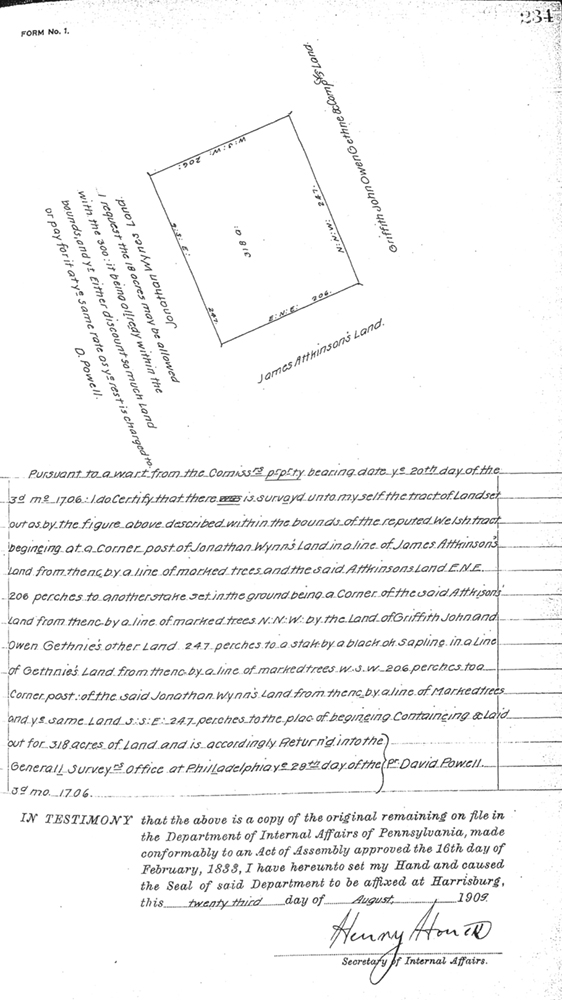 FORM No. 1.
234
Griffith John Owen Gethine & Comps Land
W: S: W: 206:
N: N: W: 247.
318:
S: S: E:
247.
E: N: E: 206.
James Attkinson's Land.
Jonathan Wynes Land.
I request the 18 acres may be allowed
with the 300: it being allredy within the
bounds, and ye Either discount so much Land
or pay for it at ye same rate as ye rest is charged to.
D. Powell.
Pursuant to a wart from the Comissrs prprty bearing date ye 20th day of the
3d mo 1706: I do Certify that there was is survayd unto my self the tract of Land set
out as by the figure above described within the bounds of the reputed Welsh tract
beginging at a Corner post of Jonathan Wynn's Land in a line of James Attkinson's
Land from thenc by a line of marked trees and the said Attkinsons Land E.N.E.
206 perches to another stake set in the ground being a Corner of the said Attkisons
Land from thenc by a line of marked trees N.N.W: by the Land of Griffith John and
Owen Gethnie's other Land 247 perches to a stak by a black ok Sapling in a Line
of Gethnie's Land from thenc by a line of marked trees W. S. W 206 perches to a
Corner post: of the said Jonathan Wynn's Land from thenc by a line of Marked trees
and ye same Land S: S: E: 247 perches to the plac of begincing Containcing & Laid
out for 318 acres of Land and is accordingly Return'd into the
Generall Surveyrs Office at Philladelphia ye 29th day of the Pr David Powell.
3d mo. 1706.
IN TESTIMONY that the above is a copy of the original remaining on file in
the Department of Internal Affairs of Pennsylvania, made
conformably to an Act of Assembly approved the 16th day of
February, 1833, I have hereunto set my Hand and caused
the Seal of said Department to be affixed at Harrisburg,
this twenty third day of August, 1909.
Henry Houck
Secretary of Internal Affairs.